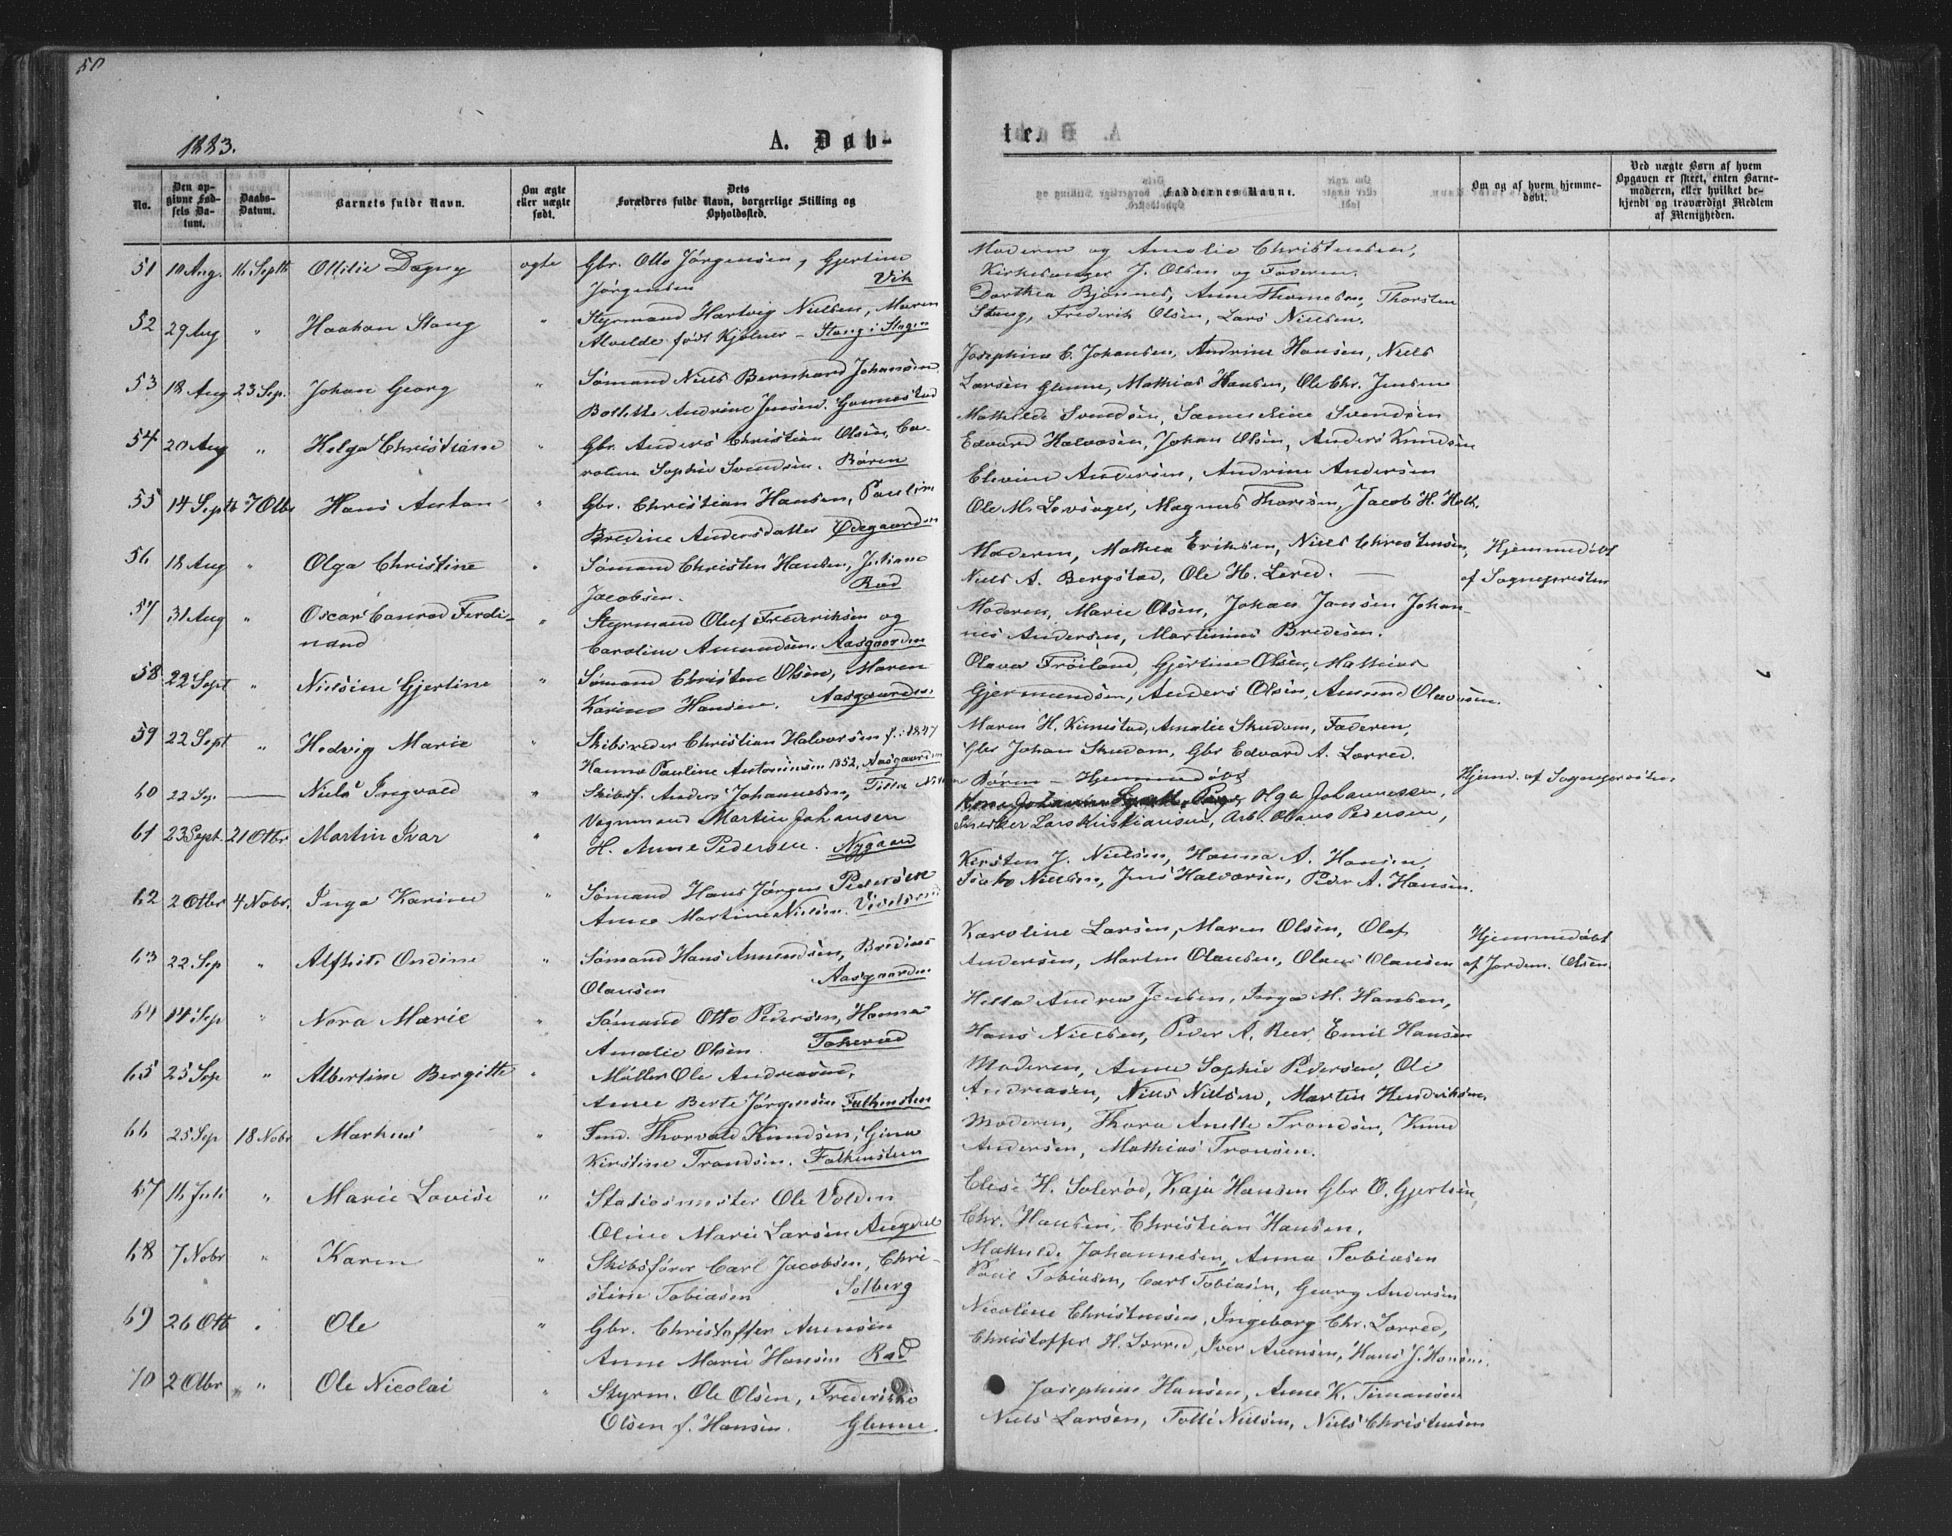 50
1883.
A. Døb-
No.
Den op-
givne Fød-
sels Da-
tum.
Daabs-
Datum.
Barnets fulde Navn.
Om ægte
eller uægte
født.
Dets
Forældres fulde Navn, borgerlige Stilling og
Opholdsted.
51 10 Aug. 16 Septb Ottilie Dagny ægte Gbr. Otto Jörgensen, Gjertine
Jörgensen Vik
52 29 Aug " Haakon Stang " Styrmand Hartvig Nielsen, Maren
Alvilde født Kjölner - Stang i Slagen
53 18 Aug 23 Sep. Johan Georg " Sømand Niels Bernhard Johansen
Bollette Andrine Jensen. Gannestad
54 20 Aug " Helga Christiane " Gbr. Anders Christian Olsen, Ca-
roline Sophie Svendsen. Båren
55 14 Septb 7 Otbr Hans Anton " Gbr. Christian Hansen, Pauline
Bredine Andersdatter Ødegaarden
56 18 Aug " Olga Christine " Sømand Christen Hansen, Juliane
Jacobsen. Rød
57 31 Aug " Oscar Conrad Ferdi-
nand " Styrmand Oluf Frederiksen og
Caroline Amundsen. Aasgaarden
58 22 Sept " Nielsine Gjertine " Sømand Christen Olsen, Maren
Karine Hansen. Aasgaarden
59 22 Sept " Hedvig Marie " Skibsreder Christian Halvorsen f. 1847
Hanna Pauline Antonsen 1852, Aasgaarden
60 22 Sep. — Niels Ingvald " Skibsf. Anders Johannesen,
61 23 Sept. 21 Otbr Martin Ivar " Vognmand Martin Johansen
H. Anne Pedersen. Nygaard
62 2 Otbr 4 Nobr. Inga Karine " Sømand Hans Jörgen Pedersen
Anne Martine Nielsen.
63 22 Sep " Alfhild Ondine " Sømand Hans Amundsen, Bredine
Olausen Aasgaarden
64 14 Sep " Nora Marie " Sømand Otto Pedersen, Hanna
Amalie Olsen. Takerød
65 25 Sep " Albertine Bergitte " Møller Ole Andreasen,
Anne Berte Jörgensen Falkensten
66 25 Sep 18 Nobr Markus " Thorvald Knudsen, Gina
Kirstine Trondsen. Falkensten
67 16 Juli " Marie Lovise " Stationsmester Ole Volden
Oline Marie Larsen Augedal
68 7 Nobr " Karen " Skibsfører Carl Jacobsen, Chri-
stine Tobiasen Solberg
69 26 Otb " Ole " Gbr. Christoffer Arensen
Anne Marie Hansen Rød
70 2 Otbr " Ole Nicolai " Styrm. Ole Olsen, Frederikke
Olsen f. Hansen. Glenne
te.
Faddernes Navne.
Om og af hvem hjemme-
døbt.
Ved uægte Børn af hvem
Opgaven er skeet, enten Barne-
moderen, eller hvilket be-
kjendt og troværdigt Medlem
af Menigheden.
Moderen og Amalie Christensen,
Kirkesanger J. Olsen og Faderen.
Dorthea Bjönnes, Anne Thomesen, Thorsten
Stang, Frederik Olsen, Lars Nielsen.
Josephine C. Johansen, Andrine Hansen, Niels
Larsen Glenne, Mathias Hansen, Ole Chr. Jensen
Mathilde Svendsen, Samueline Svendsen
Edvard Halvorsen, Johan Olsen, Anders Knudsen
Elevine Andersen, Andrine Andersen
Ole M. Lövsager, Magnus Thorsen, Jacob H. Holt.
Moderen, Mathea Eriksen, Niels Christensen, Hjemmedøbt
Niels A. Bergstad, Ole H. Lered. — af Sognepresten
Moderen, Marie Olsen, Johan Jansen Johan-
nes Andersen, Martinius Bredesen.
Olava Fröiland, Gjertine Olsen, Mathias
Gjermundsen, Anders Olsen, Amund Olavesen.
Maren H. Kimestad, Amalie Skudam, Faderen,
Gbr Johan Skudam, Gbr Edvard A. Lørred.
Båren - Hjemmedøbt Hjemd. af Sognepresten
Olga Johannesen,
Snedker Lars Kristiansen, Arb. Olaus Pedersen,
Kirsten J. Nielsen, Hanna A. Hansen,
Isak Nielsen, Jens Halvorsen, Peder A. Hansen.
Karoline Larsen, Maren Olsen, Olaf Hjemmedøbt
Andersen, Martin Olausen, Olaus Olausen af Jordm. Olsen
Hilla Andrea Jensen, Inga M. Hansen,
Hans Nielsen, Peder A. Beer, Emil Hansen
Moderen, Anne Sophie Pedersen, Ole
Andreasen, Niels Nielsen, Martin Hendriksen
Moderen, Thora Anette Trondsen, Knud
Andersen, Mathias Tronsen.
Elise H. Solerød, Kaja Hansen Gbr O. Gjertsen,
Chr. Hansen, Christian Hansen.
Mathilde Johannesen, Anna Tobiasen
Poul Tobiasen, Carl Tobiasen, Georg Andersen
Nicoline Christensen, Ingeborg Chr. Lørred,
Christoffer H. Lørred, Iver Arensen, Hans J. Hansen.
Josephine Hansen, Anne K. Simonsen
Niels Larsen, Tollef Nielsen, Niels Christensen